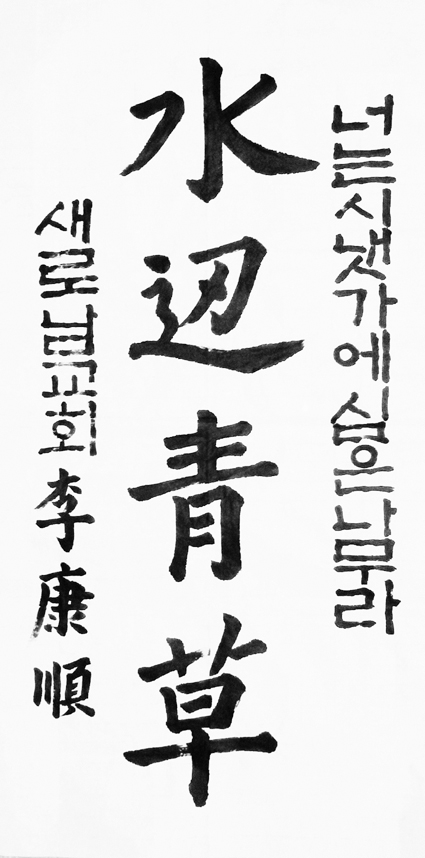 너는시냇가에심은나무라
水辺青草
새로남교회 李康順